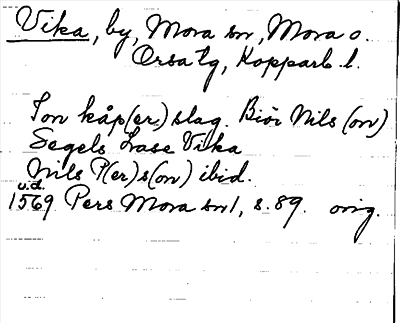 Vika, by, Mora sn, Mora o.
Orsa tg, Kopparb. l.
Ion kåp(er)slag. Biör Nils (on)
Segels Lasse Vika
Nils P(er)s(on) ibid.
u.d.
1569 Pers Mora sn 1, s. 89. orig.